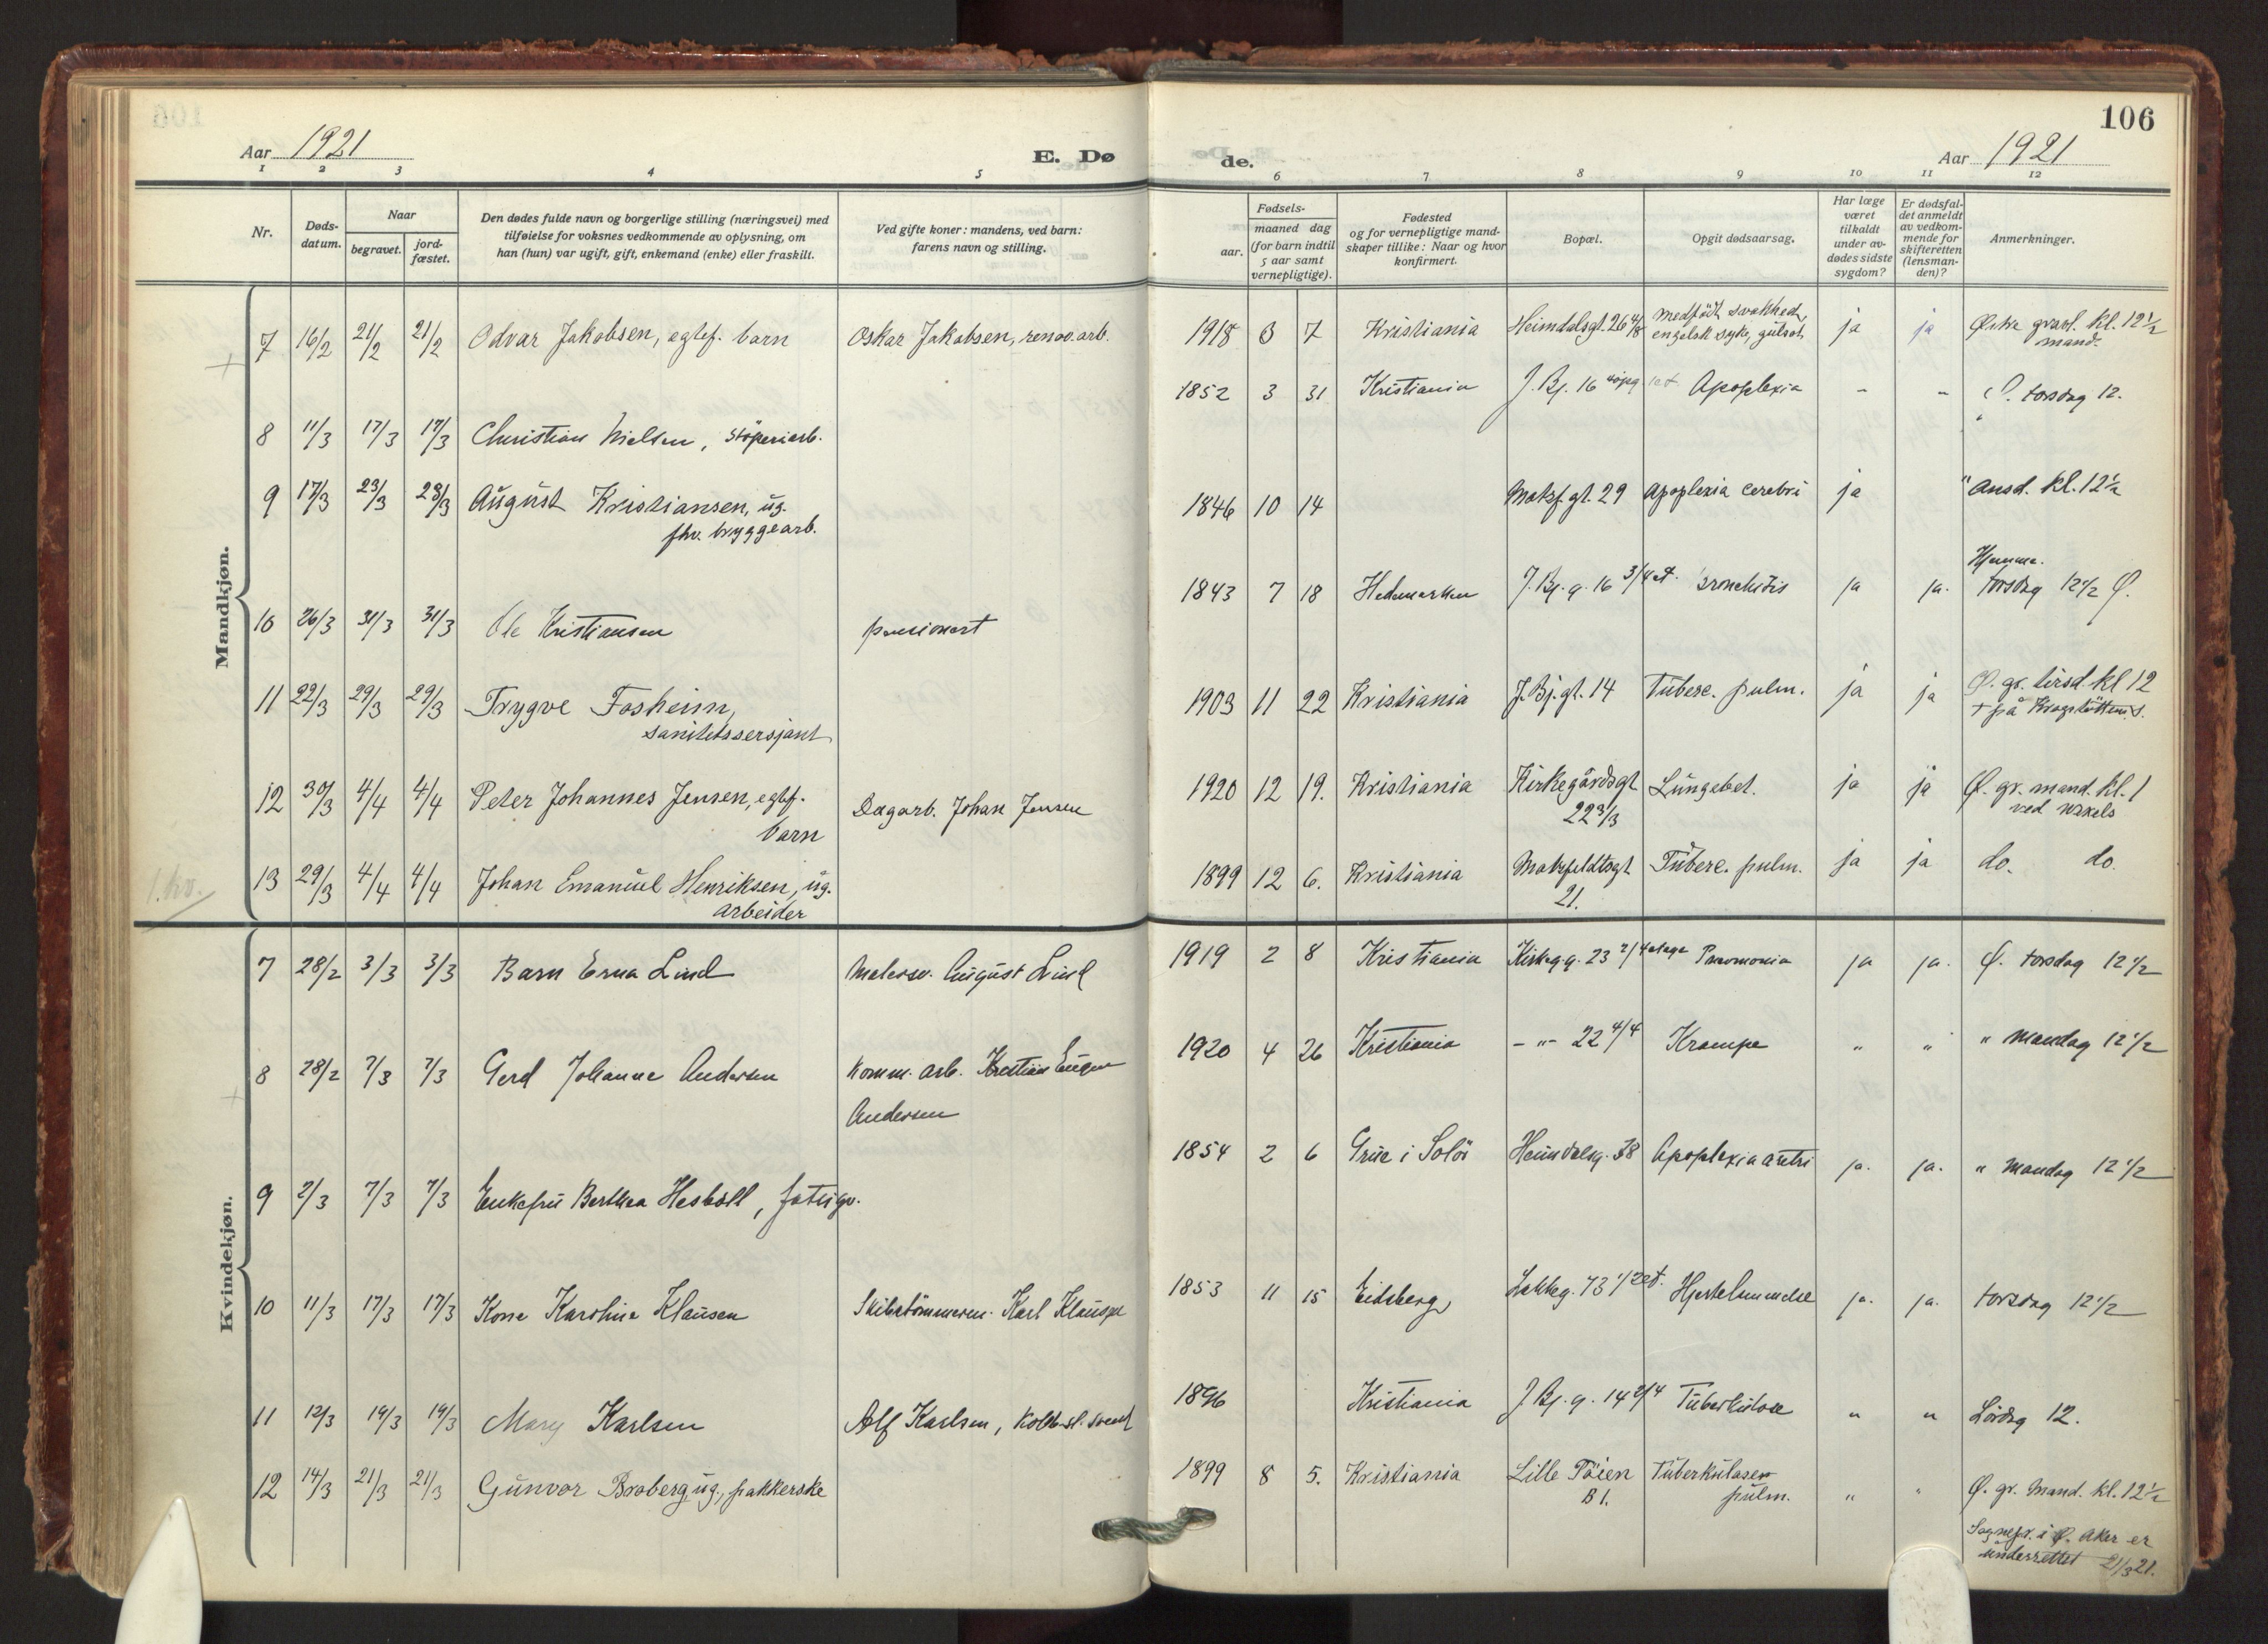 106
Aar 1921 E. Døde. Aar 1921
1 2 3 4 5 6 7 8 9 10 11 12
Nr.
Døds-
datum.
Naar
begravet.
jord-
fæstet.
Den dødes fulde navn og borgerlige stilling (næringsvei) med
tilføielse for voksnes vedkommende av oplysning, om
han (hun) var ugift, gift, enkemand (enke) eller fraskilt.
Ved gifte koner: mandens, ved barn:
farens navn og stilling.
Fødsels-
aar.
maaned dag
(for barn indtil
5 aar samt
vernepligtige).
Fødested
og for vernepligtige mand-
skaper tillike: Naar og hvor
konfirmert.
Bopæl.
Opgit dødsaarsag.
Har læge
været
tilkaldt
under av-
dødes sidste
sygdom?
Er dødsfal-
det anmeldt
av vedkom-
mende for
skifteretten
(lensman-
den)?
Anmerkninger.
Mandkjøn.
7 16/2 21/2 21/2 Odvar Jakobsen, egtef. barn Oskar Jakobsen, renov. arb. 1918 3 7 Kristiania Heimdalsgt. 26 4/8 medfödt svakhed, engelsk syke, gulsot, ja ja Østre gravl. kl. 12½ mand.
8 11/3 17/3 17/3 Christian Nielsen, støperiarb. 1852 3 31 Kristiania J. Bj. 16 Apoplexia - - Ø. torsdag 12.
9 17/3 23/3 23/3 August Kristiansen, ug. fhv. bryggearb. 1846 10 14 Motzf. gt. 29 Apoplexia cerebri ja " onsd. kl. 12½
10 26/3 31/3 31/3 Ole Kristiansen pensionert 1843 7 18 Hedemarken J. Bj. g. 16 3/4 et. Bronchitis ja ja. Hjemme. torsdag 12½ Ø.
11 22/3 29/3 29/3 Trygve Fosheim, sanitetssersjant 1903 11 22 Kristiania J. Bj. gt. 14 Tuberc. pulm. ja ja Ø. gr. tirsd. kl 12 + på Krogstötten s.
12 30/3 4/4 4/4 Peter Johannes Jensen, egtef. barn Dagarb. Johan Jensen 1920 12 19. Kristiania Kirkegårdsgt 22 3/3 Lungebet. ja ja Ø. gr. mand. kl. 1 ved
1. kv. 13 29/3 4/4 4/4 Johan Emanuel Henriksen, ug. arbeider 1899 12 6. Kristiania Motzfeldtsgt 21. Tuberc. pulm. ja ja do. do.
Kvindekjøn.
7 28/2 3/3 3/3 Barn Erna Lind Malersv. August Lind 1919 2 8 Kristiania Kirkeg. g. 23 2/4 etage Pneumonia ja ja. Ø. torsdag 12½
8 28/2 7/3 7/3 Gerd Johanne Andersen Komm. arb. Kristian Eugen Andersen 1920 4 26 Kristiania - " - 22 4/4 Krampe " " " Mandag 12½
9 2/3 7/3 7/3 Enkefru Berthea Hesböll, fattigv. 1854 2 6 Grue i Solör Heimdalsg. 38 Apoplexia ja. ja. " Mandag 12½
10 11/3 17/3 17/3 Kone Karoline Klausen Skibstømmerm. Karl Klausen 1853 11 15 Eidsberg Lakkeg. 73 1/2 et. Hjertelammelse ja. ja. torsdag 12½
11 12/3 19/3 19/3 Mary Karlsen Alf Karlsen, 1896 Kristiania J. Bj. g. 14 2/4 Tuberkulose " " Lördag 12.
12 14/3 21/3 21/3 Gunvor Broberg, ug., pakkerske 1899 8 5. Kristiania Lille Töien B 1. Tuberkulosen pulm. " " Ø. gr. Mand. kl. 12½
Sognepr. i Ø. Aker er
underrettet 21/3 21.